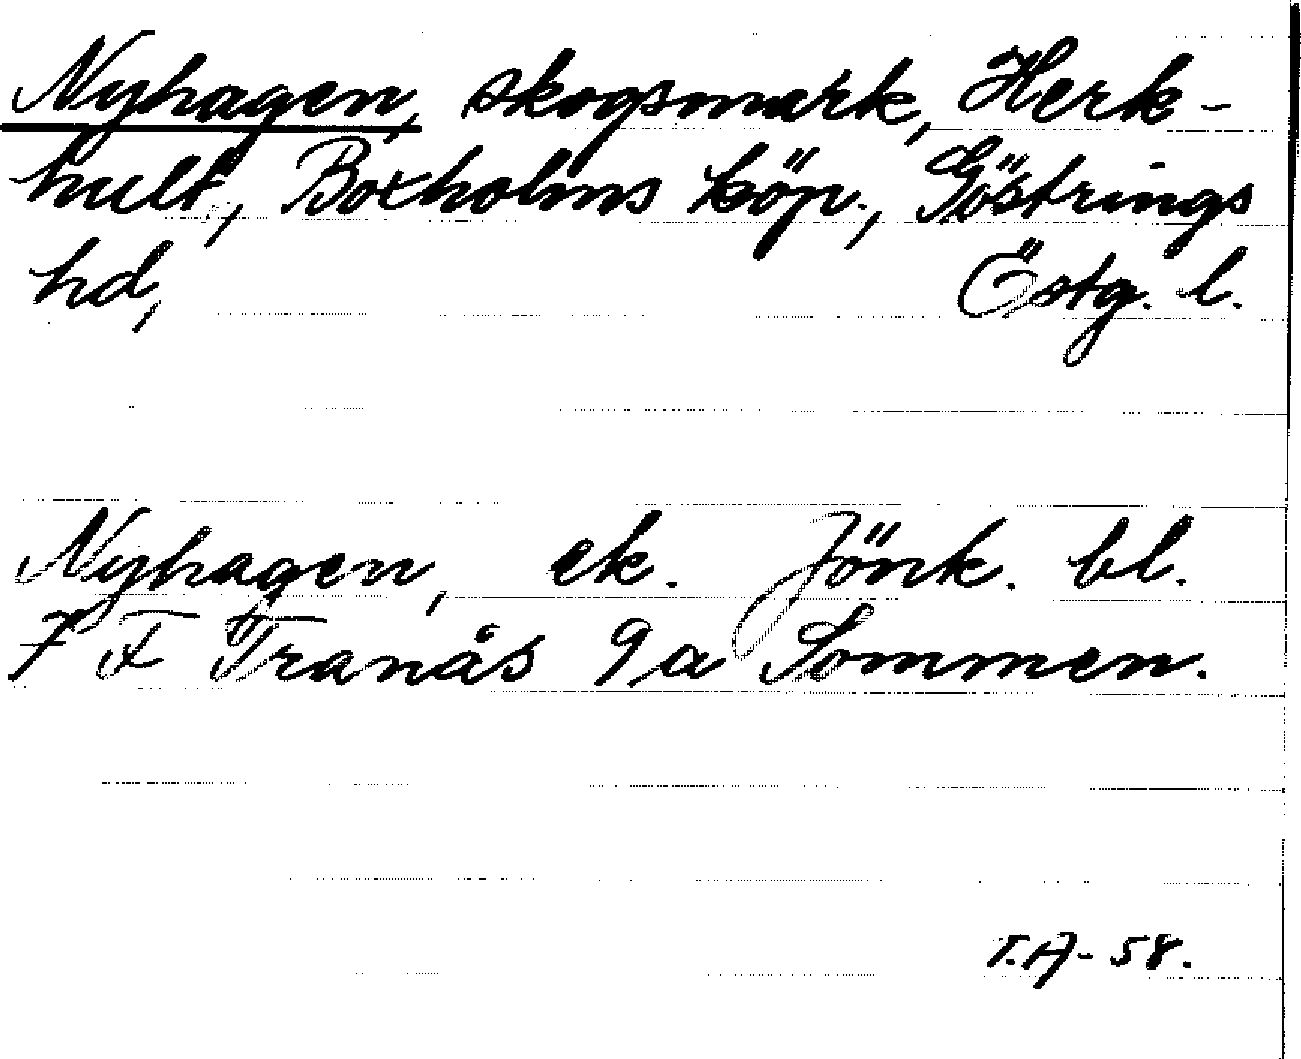 Nyhagen, skogsmark, Herk-
hult, Boxholms köp., Göstrings
hd, Östg. l.
Nyhagen, ek. Jönk. bl.
7 F Tranås 9a Sommen.
T.A-58.